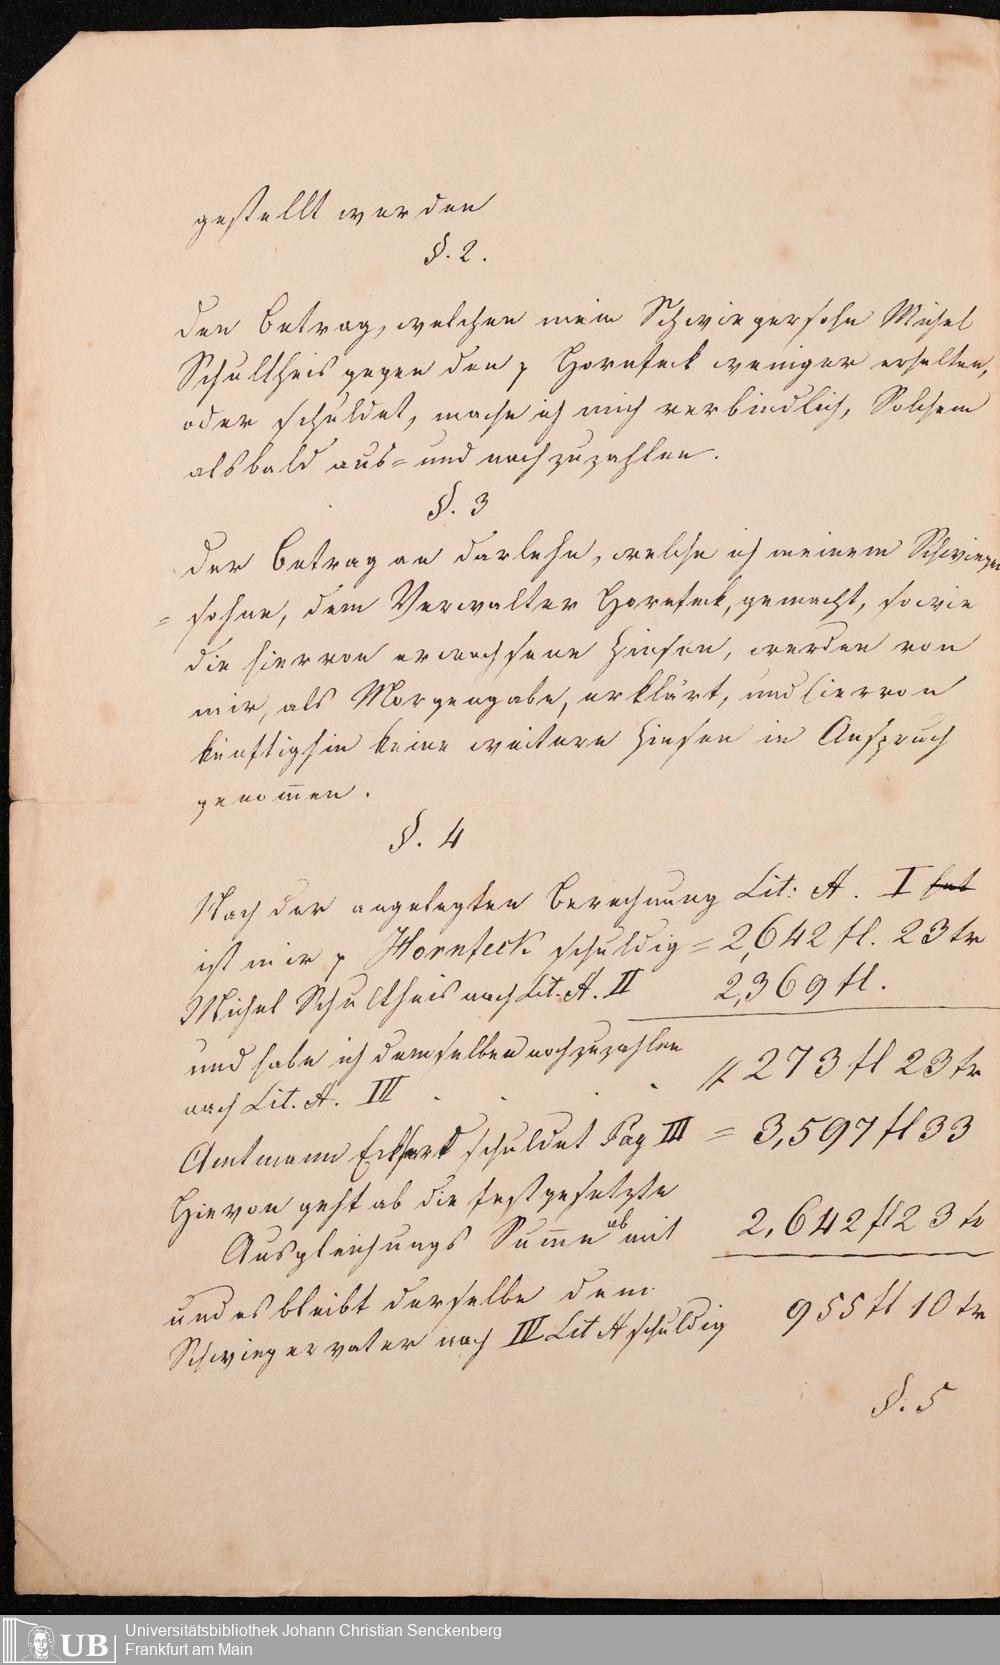 gestellt werden
§. 2.
Den Betrag, welchen mein Schwiegersohn Michel
Schultheis gegen den p Hornfeck weniger erhalten,
oder schuldet, mache ich mich verbindlich, Solchem
alsbald aus= und nachzuzahlen.
§. 3
Der Betrag an Darlehn, welche ich meinem Schwieger
=sohne, dem Verwalter Hornfeck, gemacht, sowie
die hiervon erwachsenen Zinsen, werden von
mir, als Morgengabe, erklärt, und hiervon
künftighin keine weitere Zinsen in Anspruch
genom̄en.
§. 4
Nach der angelegten Berechnung Lit: A. I hat
ist mir p Hornfeck schuldig = 2,642 fl. 23 kr
Michel Schultheis nach Lit. A. II 2,369 fl.
und habe ich demselben nachzuzahlen
nach Lit. A. III . . . . 273 fl 23 kr
Amtmann Eckhardt schuldet Pag III = 3,597 fl 33
Hievon geht ab die festgesetzte
Ausgleichungs Sum̄e ab mit 2,642 fl 23 kr
und es bleibt derselbe dem
Schwiegervater nach IV Lit A schuldig 955 fl 10 kr
§. 5
UB Universitätsbibliothek Johann Christian Senckenberg
Frankfurt am Main